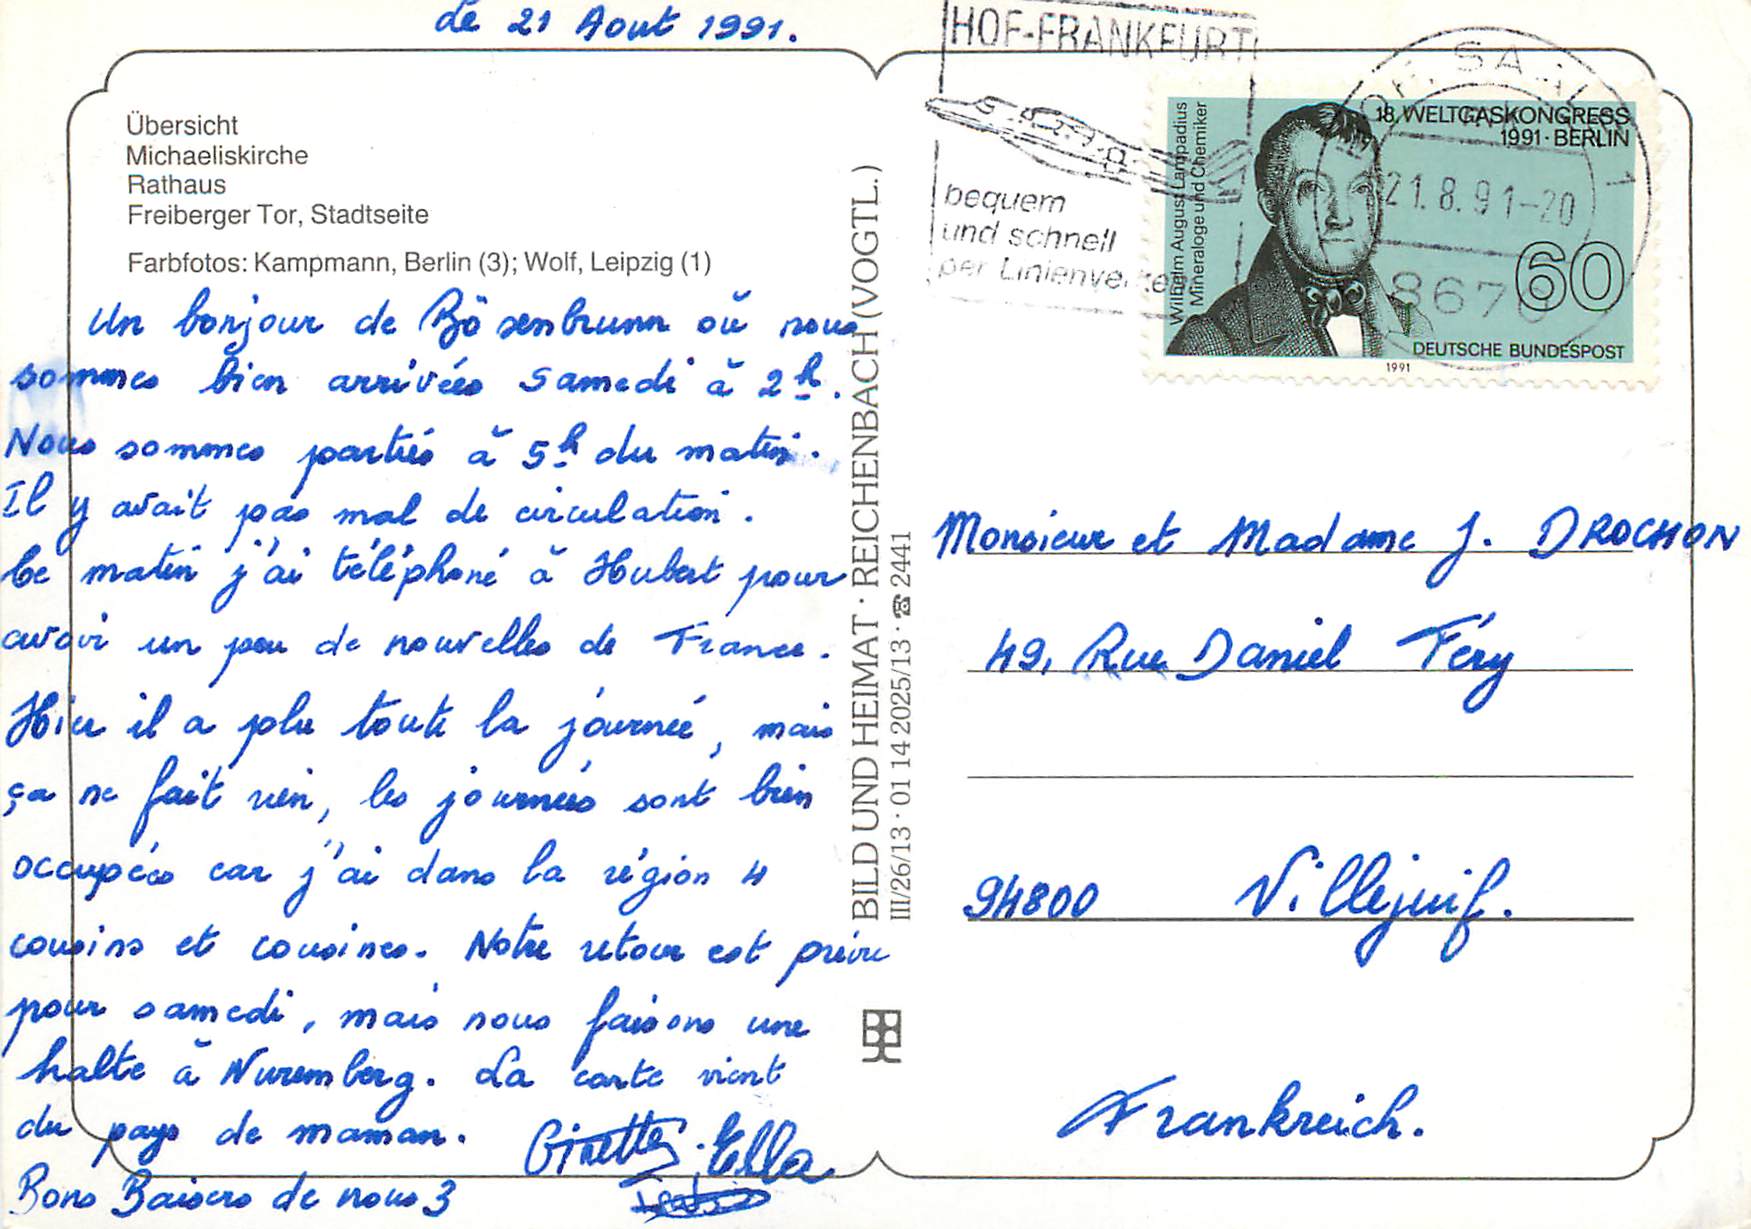 Le 21 Aout 1991.
Übersicht
Michaeliskirche
Rathaus
Freiberger Tor, Stadtseite
Farbfotos: Kampmann, Berlin (3); Wolf, Leipzig (1)
Un bonjour de Bösenbrunn où nous
sommes bien arrivées samedi à 2h.
Nous sommes partiés à 5h du matin.
Il y avait pas mal de circulation.
Ce matin j'ai téléphoné à Hubert pour
avoir un peu de nouvelles de France.
Hier il a plu toute la journée, mais
ça ne fait rien, les journées sont bien
occupées car j'ai dans la région 4
cousins et cousines. Notre retour est prévu
pour samedi, mais nous faisons une
halte à Nuremberg. La carte vient
du pays de maman.
Bons Baisers de nous 3
Ginette. Ella
BILD UND HEIMAT · REICHENBACH (VOGTL.)
III/26/13 · 01 14 2025/13 · ☎ 2441
HOF-FRANKFURT
bequem
und schnell
per
21.8.91-20
867
18. WELTGASKONGRESS
1991 · BERLIN
Wilhelm August Lampadius
Mineraloge und Chemiker
60
DEUTSCHE BUNDESPOST
1991
Monsieur et Madame J. DROCHON
49, Rue Daniel Féry
94800 Villejuif.
Frankreich.